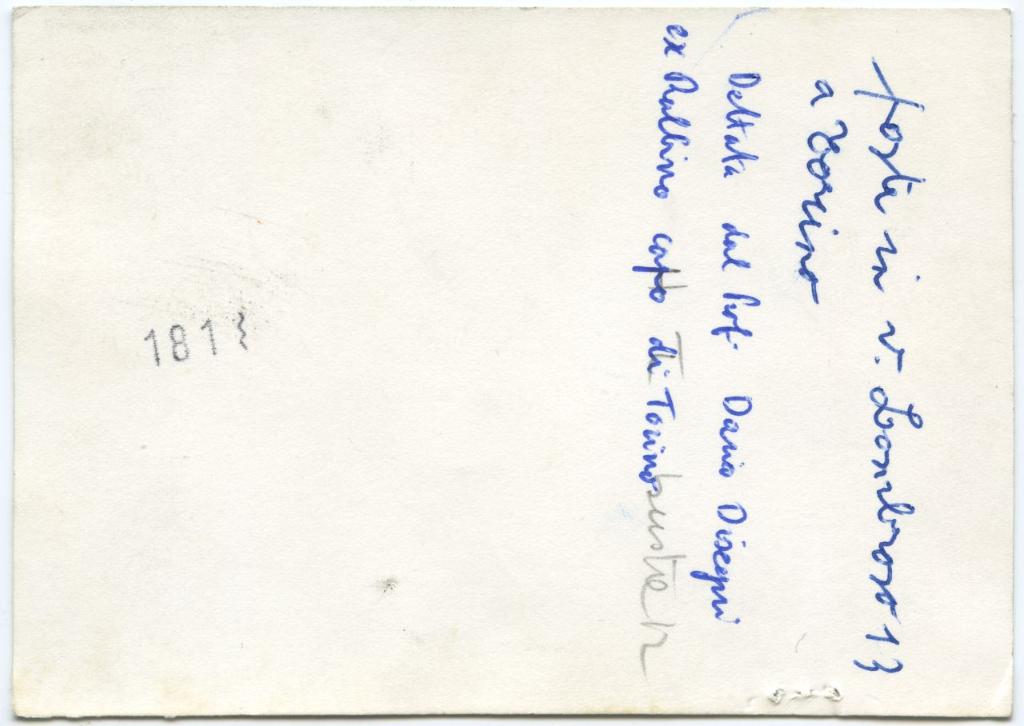 posta in v. Lombroso 13
a Torino
Dettata dal Prof. Dario Disegni
ex Rabbino capo di Torino
181